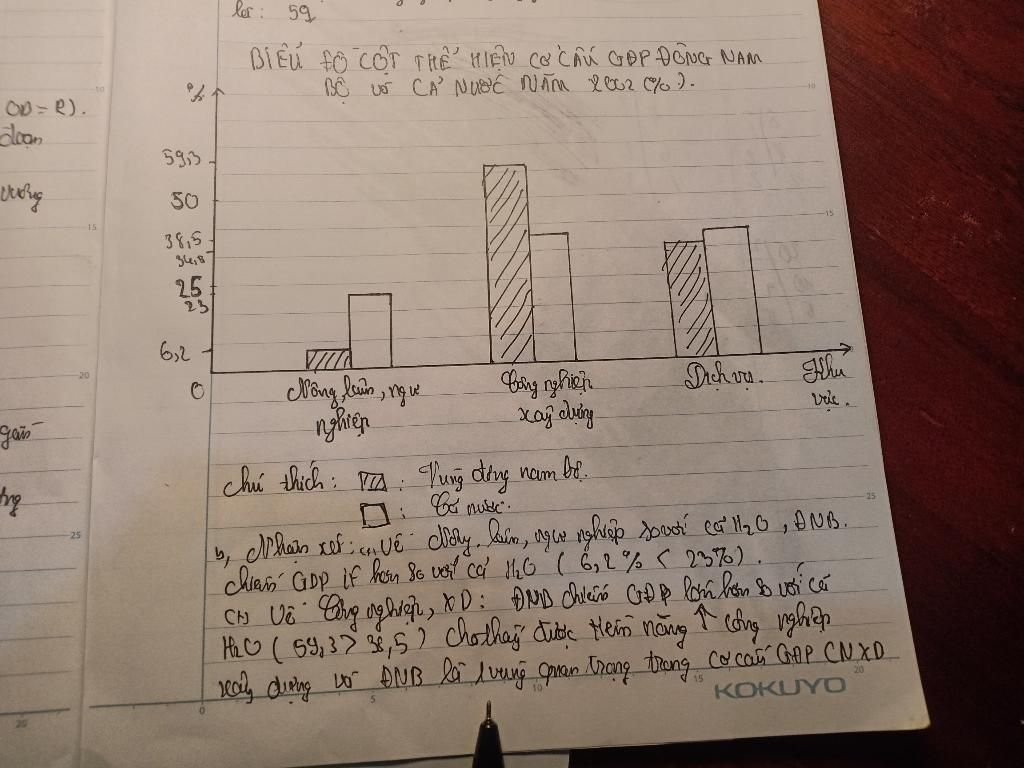 59
BIỂU ĐỒ CỘT THỂ HIỆN CƠ CẤU GDP ĐÔNG NAM
BỘ VỚI CẢ NƯỚC NĂM 2002 (%).
%
59,3
50
38,5
34,8
25
23
6,2
0
Nông, lâm, ngư
nghiệp
Công nghiệp
xây dựng
Dịch vụ.
Khu
vực.
Chú thích: : Vùng đông nam bộ.
: Cả nước.
b, Nhận xét: (+) Về Nông, lâm, ngư nghiệp so với cả H2O, ĐNB.
chiếm GDP ít hơn so với cả H2O (6,2% < 23%).
(+) Về Công nghiệp, XD: ĐNB chiếm GDP lớn hơn so với cả
H2O (59,3 > 38,5) cho thấy được tiềm năng ↑ công nghiệp
xây dựng và ĐNB là vùng quan trọng trong cơ cấu GDP CNXD
KOKUYO
OD = R).
đoạn
vuông
10
15
20
25
10
15
20
25
20
0
5
10
15
20